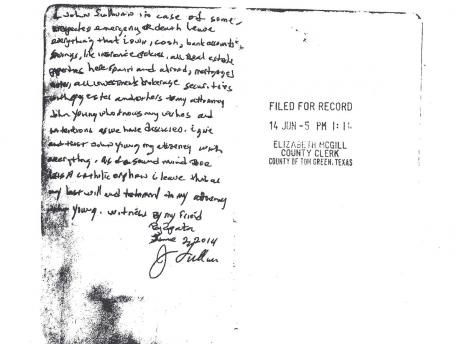 I John Sullivan in case of some
emergency or death leave
everything that I own, cash, bank accounts,
savings, life insurance policies, all real estate
properties here spain and abroad, mortgages
notes, all investments brokerage securities
and others to my attorney
John Young who knows my wishes and
intentions as we have discussed. I give
and trust John Young my attorney with
everything. As of a sound mind
a catholic orphan i leave this as
my last will and testament to my attorney
John Young. witness by my friend
June 2, 2014
FILED FOR RECORD
14 JUN -5 PM 1:14
ELIZABETH MCGILL
COUNTY CLERK
COUNTY OF TOM GREEN, TEXAS